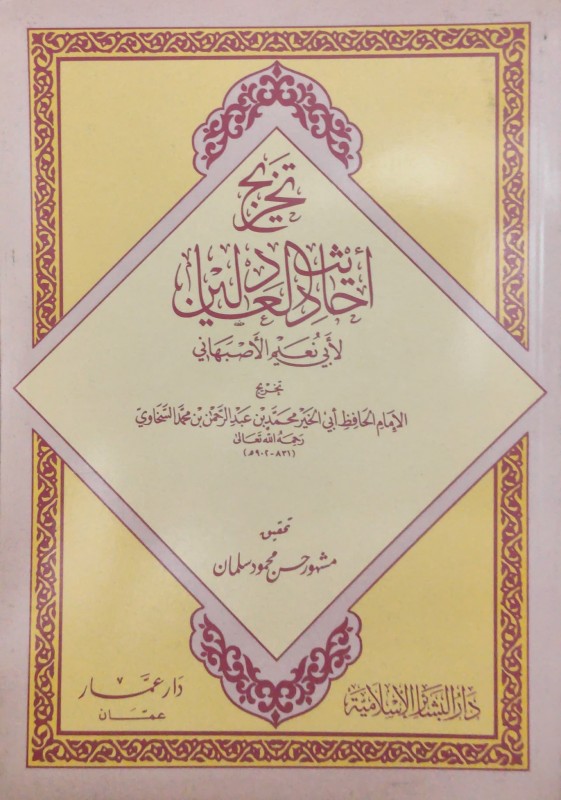 تخريج
أحاديث العادلين
لأبي نعيم الأصبهاني
تخريج
الإمام الحافظ أبي الخير محمد بن عبد الرحمن بن محمد السخاوي
رحمه الله تعالى
(٨٣١-٩٠٢هـ)
تحقيق
مشهور حسن محمود سلمان
دار البشائر الإسلامية
دار عمار
عمان